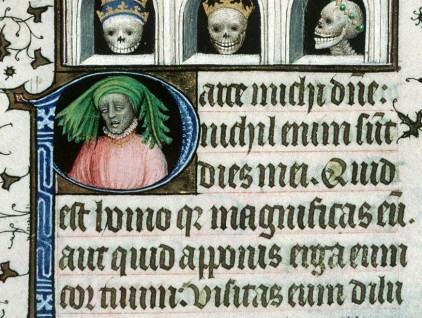 Parce michi dn̄e:
nichil enim sūt
dies mei. Quid
est homo qꝛ magnificas eū.
aut quid apponis erga eum
cor tuum: Visitas eum dilu